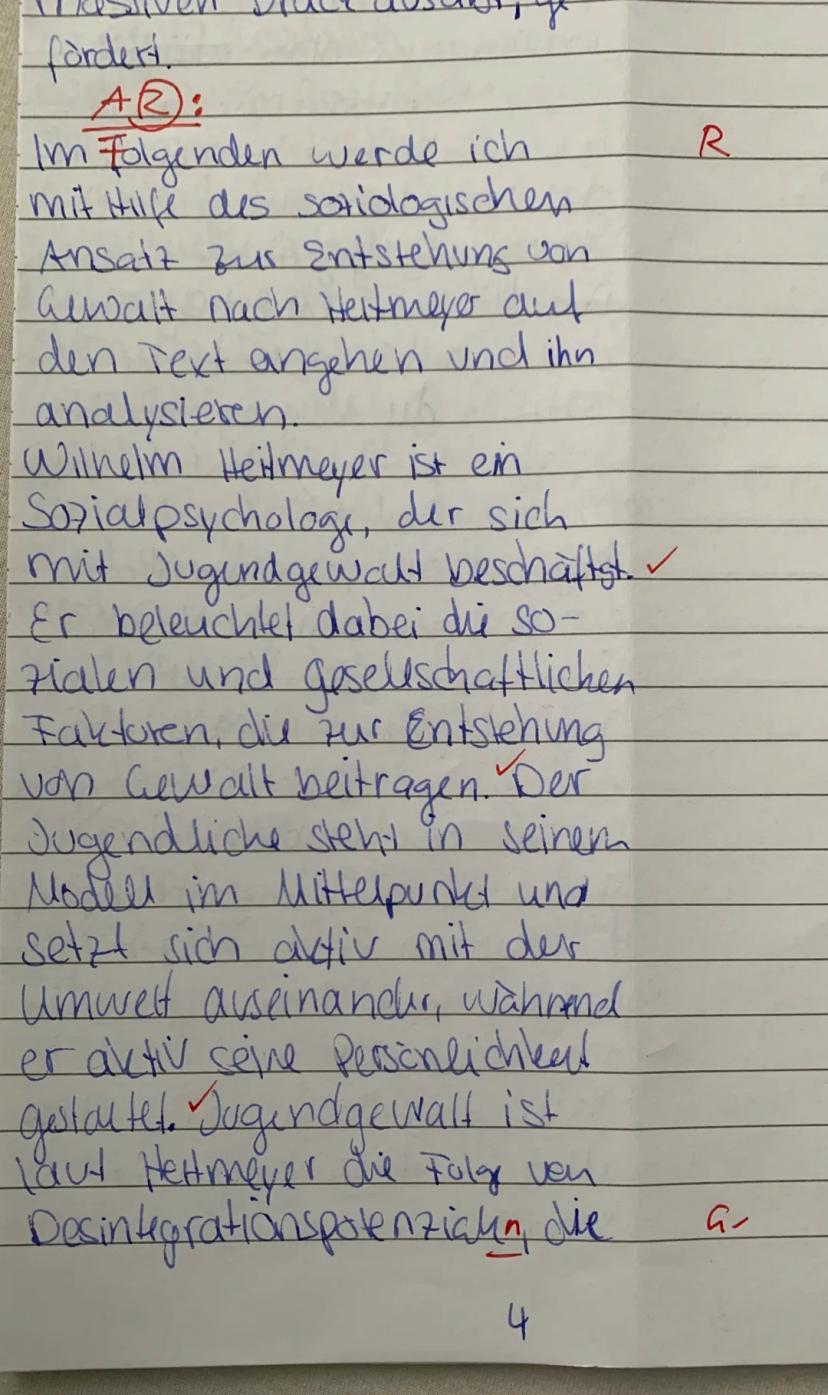 massiven Druck ausübt, ge
fördert.
A2:
Im Folgenden werde ich R
mit Hilfe des soziologischen
Ansatz zur Entstehung von
Gewalt nach Heitmeyer auf
den Text angehen und ihn
analysieren.
Wilhelm Heitmeyer ist ein
Sozialpsychologe, der sich
mit Jugendgewalt beschäftgt. ✓
Er beleuchtet dabei die so-
zialen und gesellschaftlichen
Faktoren, die zur Entstehung
von Gewalt beitragen. ✓ Der
Jugendliche steht in seinem
Modell im Mittelpunkt und
setzt sich aktiv mit der
Umwelt auseinander, während
er aktiv seine Persönlichkeit
gestaltet. ✓ Jugendgewalt ist
laut Heitmeyer die Folge von
Desintegrationspotenzialen, die G-
4